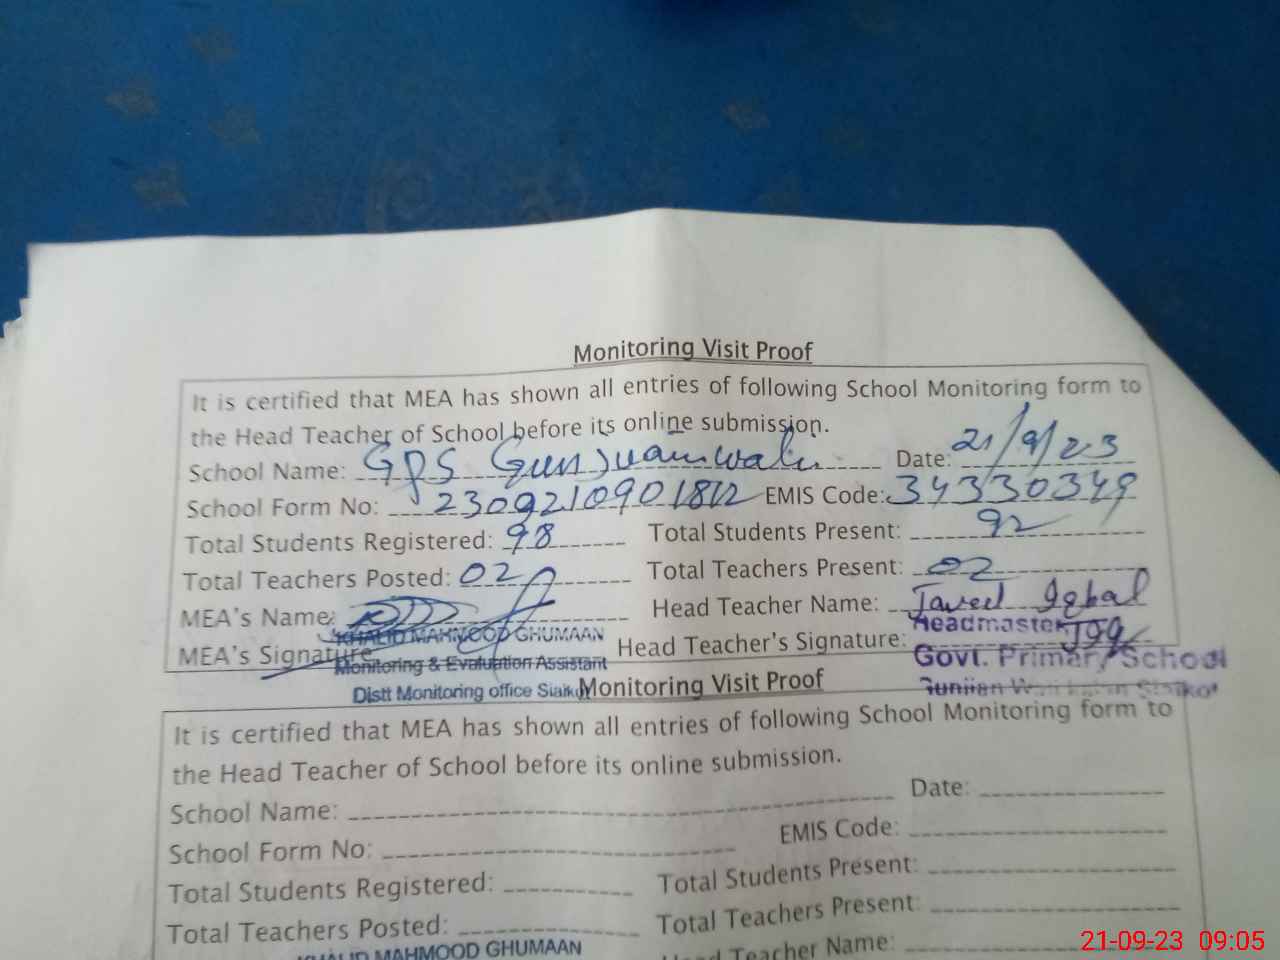 Monitoring Visit Proof
It is certified that MEA has shown all entries of following School Monitoring form to
the Head Teacher of School before its online submission.
School Name: GPS Gunjianwali Date: 21/9/23
School Form No: 2309210901812 EMIS Code: 34330349
Total Students Registered: 98 Total Students Present: 92
Total Teachers Posted: 02 Total Teachers Present: 02
MEA's Name: Head Teacher Name: Javed Iqbal
KHALID MAHMOOD GHUMAAN Headmaster
MEA's Signature Head Teacher's Signature:
Monitoring & Evaluation Assistant Govt. Primary School
Distt Monitoring office Sialkot
Monitoring Visit Proof
It is certified that MEA has shown all entries of following School Monitoring form to
the Head Teacher of School before its online submission.
School Name: Date:
School Form No: EMIS Code:
Total Students Registered: Total Students Present:
Total Teachers Posted: Total Teachers Present:
KHALID MAHMOOD GHUMAAN Head Teacher Name:
21-09-23 09:05